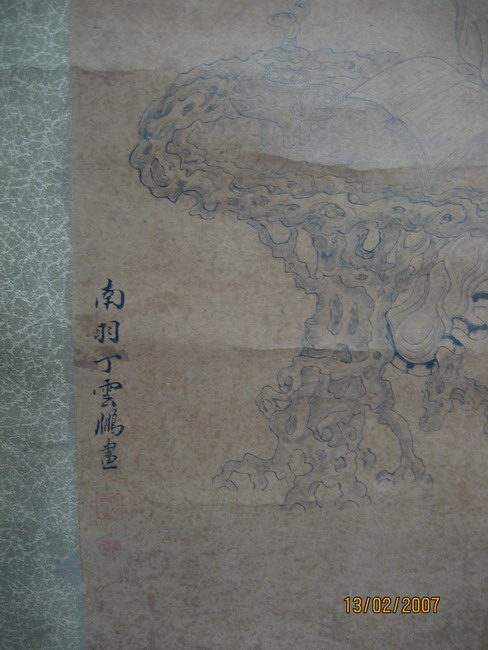 南羽丁雲鵬畫
13/02/2007